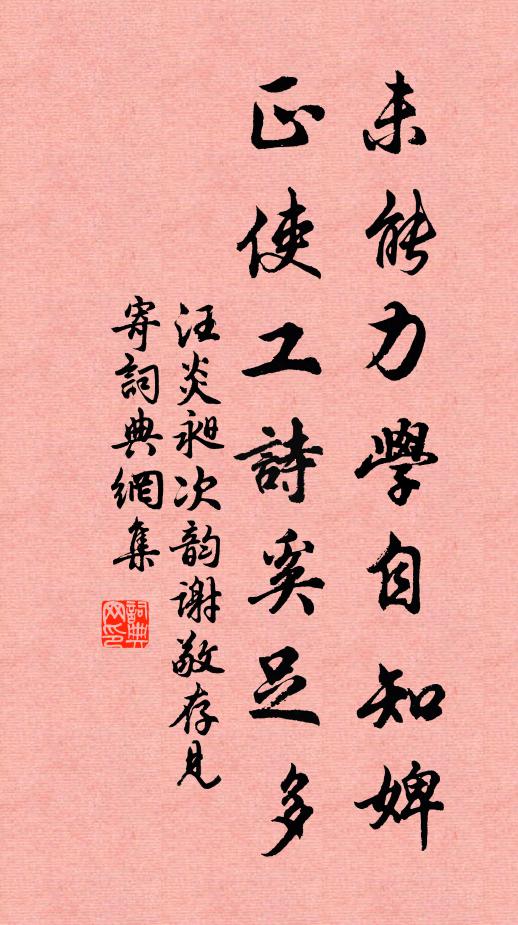 未能力學自知婢
正使工詩奚足多
汪炎昶次韵謝敬存見
寄詞典網集
詞典网印